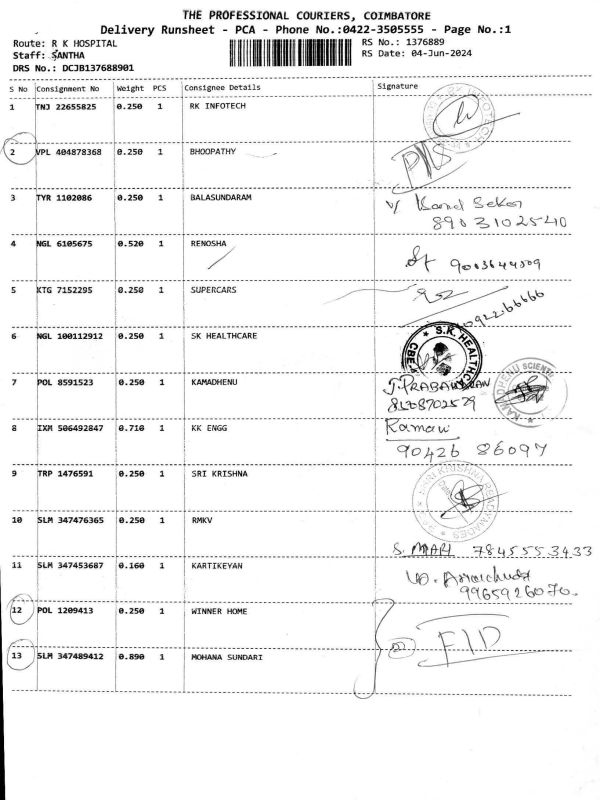 THE PROFESSIONAL COURIERS, COIMBATORE
Delivery Runsheet - PCA - Phone No.:0422-3505555 - Page No.:1
Route: R K HOSPITAL
RS No.: 1376889
Staff: SANTHA
RS Date: 04-Jun-2024
DRS No.: DCJB137688901
S No Consignment No Weight PCS Consignee Details Signature
1 TNJ 22655825 0.250 1 RK INFOTECH
2 VPL 404878368 0.250 1 BHOOPATHY
3 TYR 1102086 0.250 1 BALASUNDARAM
8903102540
4 NGL 6105675 0.520 1 RENOSHA
5 KTG 7152295 0.250 1 SUPERCARS
6 NGL 100112912 0.250 1 SK HEALTHCARE
S.K. HEALTHC
CBE
7 POL 8591523 0.250 1 KAMADHENU
KAMADHENU SCIENTI
8 IXM 506492847 0.710 1 KK ENGG
90426 86097
9 TRP 1476591 0.250 1 SRI KRISHNA
SRI KRISHNA
10 SLM 347476365 0.250 1 RMKV
7845553433
11 SLM 347453687 0.160 1 KARTIKEYAN
9965926070
12 POL 1209413 0.250 1 WINNER HOME
13 SLM 347489412 0.890 1 MOHANA SUNDARI